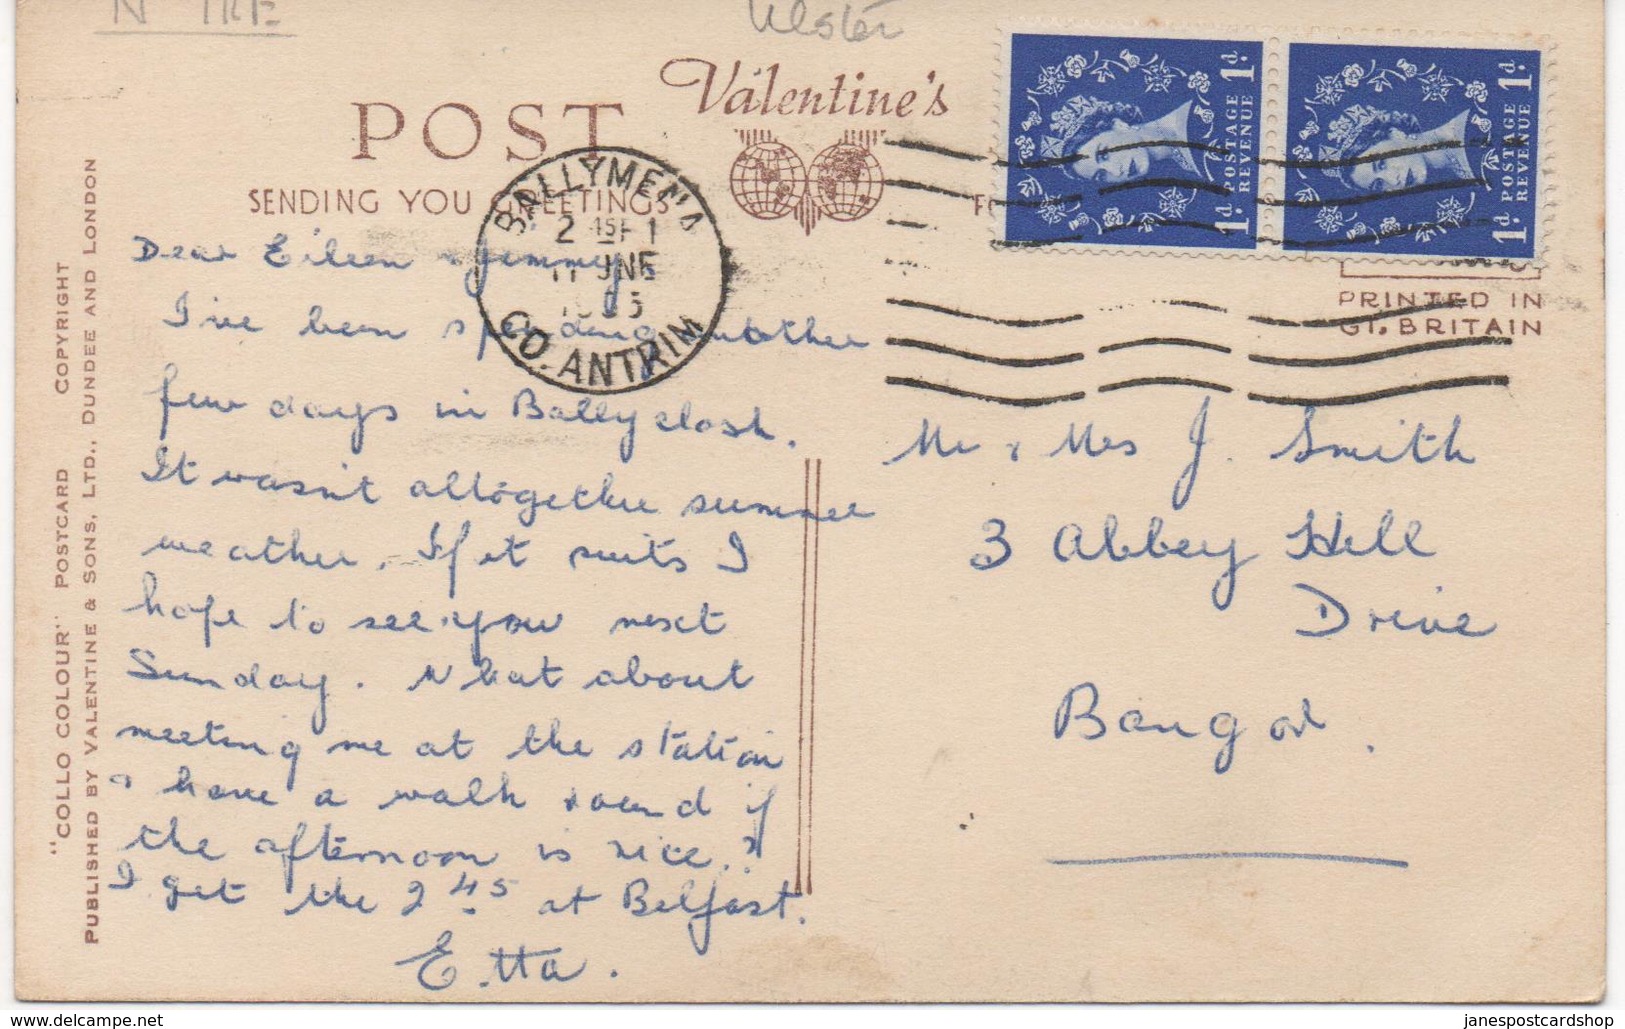 N IRE
Ulster
Valentine's
POST
SENDING YOU GREETINGS
BALLYMENA
2 15 PM
11 JNE
CO. ANTRIM
1D. POSTAGE REVENUE 1D.
1D. POSTAGE REVENUE 1D.
PRINTED IN
GT. BRITAIN
"COLLO COLOUR" POSTCARD COPYRIGHT
PUBLISHED BY VALENTINE & SONS, LTD., DUNDEE AND LONDON
Dear Eileen & Jimmy,
I've been spending another
few days in Ballyclosh.
It wasn't altogether summer
weather. If it suits I
hope to see you next
Sunday. What about
meeting me at the station
& have a walk round if
the afternoon is nice?
I get the 2 45 at Belfast.
Etta.
Mr & Mrs J. Smith
3 Abbey Hill
Drive
Bangor.
janespostcardshop
www.delcampe.net